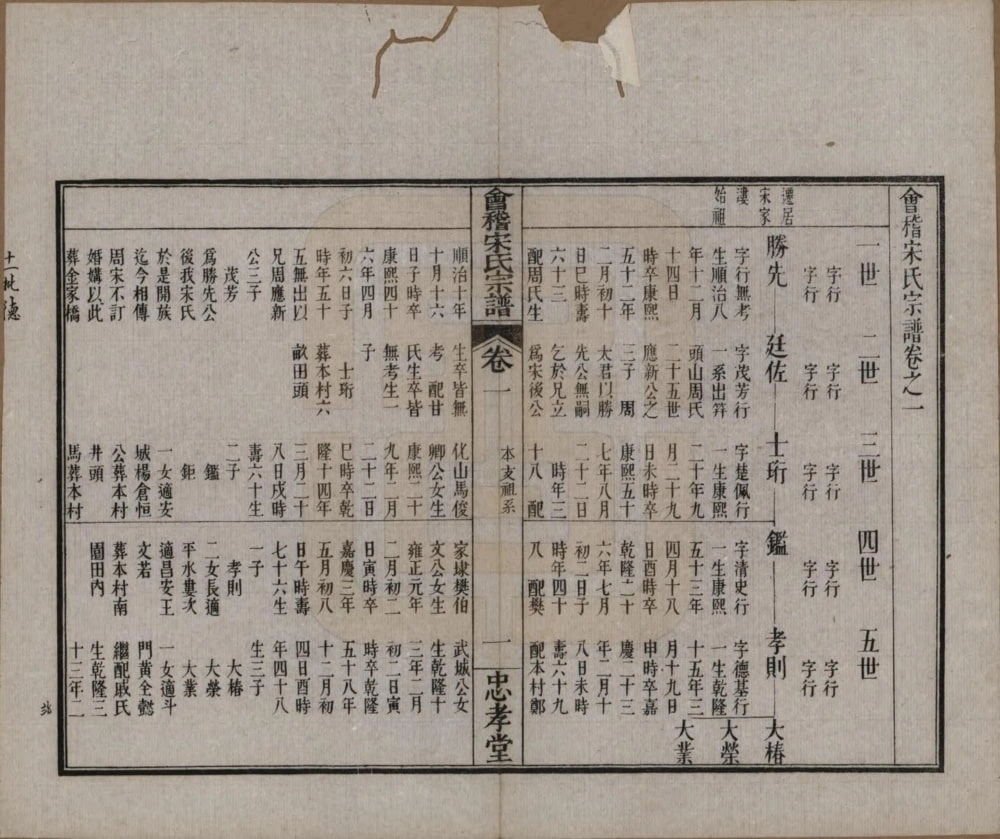 會稽宋氏宗譜卷之一
一世 二世 三世 四世 五世
字行 字行 字行 字行 字行
字行 字行 字行 字行 字行
遷居
宋家
漊
始祖
勝先 廷佐 士珩 鑑 孝則 大椿
大榮
大業
字行無考
生順治八
年十二月
十四日
時卒康熙
五十二年
二月初十
日巳時壽
六十三
配周氏生
順治十年
十月十六
日子時卒
康熙四十
六年四月
初六日子
時年五十
五無出以
兄周應新
公三子
茂芳
爲勝先公
後我宋氏
於是開族
迄今相傳
周宋不訂
婚媾以此
葬金家橋
字茂芳行
一系出笄
頭山周氏
二十五世
應新公之
三子 周
太君以勝
先公無嗣
乞於兄立
爲宋後公
生卒皆無
考 配甘
氏生卒皆
無考生一
子
士珩
葬本村六
畝田頭
字楚佩行
一生康熙
二十年九
月二十九
日未時卒
康熙五十
七年八月
二十二日
時年三
十八 配
化山馬俊
卿公女生
康熙二十
九年二月
二十二日
巳時卒乾
隆十四年
三月二十
八日戌時
壽六十生
二子
鑑
鉅
一女適安
城楊倉恒
公葬本村
井頭
馬葬本村
字清史行
一生康熙
五十三年
四月十八
日酉時卒
乾隆二十
六年七月
初二日子
時年四十
八 配樊
家埭樊伯
文公女生
雍正元年
二月初二
日寅時卒
嘉慶三年
五月初八
日午時壽
七十六生
一子
孝則
二女長適
平水婁次
適昌安王
文若
葬本村南
園田內
字德基行
一生乾隆
十五年三
月十九日
申時卒嘉
慶二十三
年二月十
八日未時
壽六十九
配本村鄭
武城公女
生乾隆十
三年二月
初二日寅
時卒乾隆
五十八年
十二月初
四日酉時
年四十八
生三子
大椿
大榮
大業
一女適斗
門黄全懿
繼配戚氏
生乾隆三
十三年二
會稽宋氏宗譜
卷一
本支祖系
一
忠孝堂